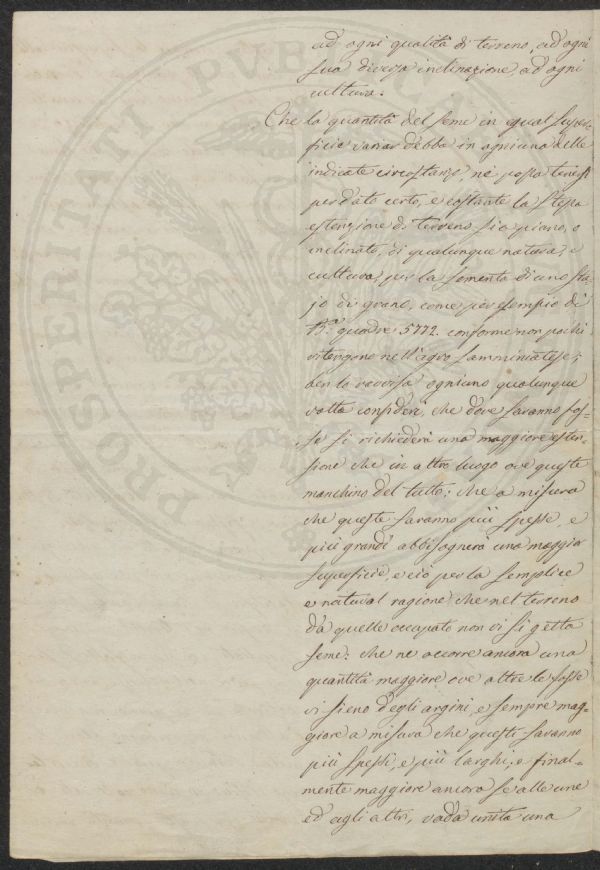 ad ogni qualità di terreno, ad ogni
sua diversa inclinazione, ad ogni
cultura.
Che la quantità del seme in egual super-
ficie variar debba in ogniuna delle
indicate circostanze, nè possa tenersi
per dato certo, e costante la stessa
estenzione di terreno sia piano, o
inclinato, di qualunque natura, e
cultura, per la sementa di uno sta-
jo di grano, come per esempio di
B.a quadre 5772. conforme non pochi
ritengono nell'agro Samminiatese;
ben lo ravvisa ogniuno qualunque
volta consideri, che dove saranno fos-
se si richiederà una maggiore esten-
sione che in altro luogo ove queste
manchino del tutto; che a misura
che queste saranno più spesse, e
più grandi abbisognerà una maggior
superficie, e ciò per la semplice
e natural ragione che nel terreno
da quelle occupato non vi si getta
seme; che ne occorre ancora una
quantità maggiore ove oltre le fosse
vi sieno degli argini, e sempre mag-
giore a misura che questi saranno
più spessi, e più larghi, e final-
mente maggiore ancora se alle une
ed agli altri, vada unita una
PROSPERITATI PUBLICAE